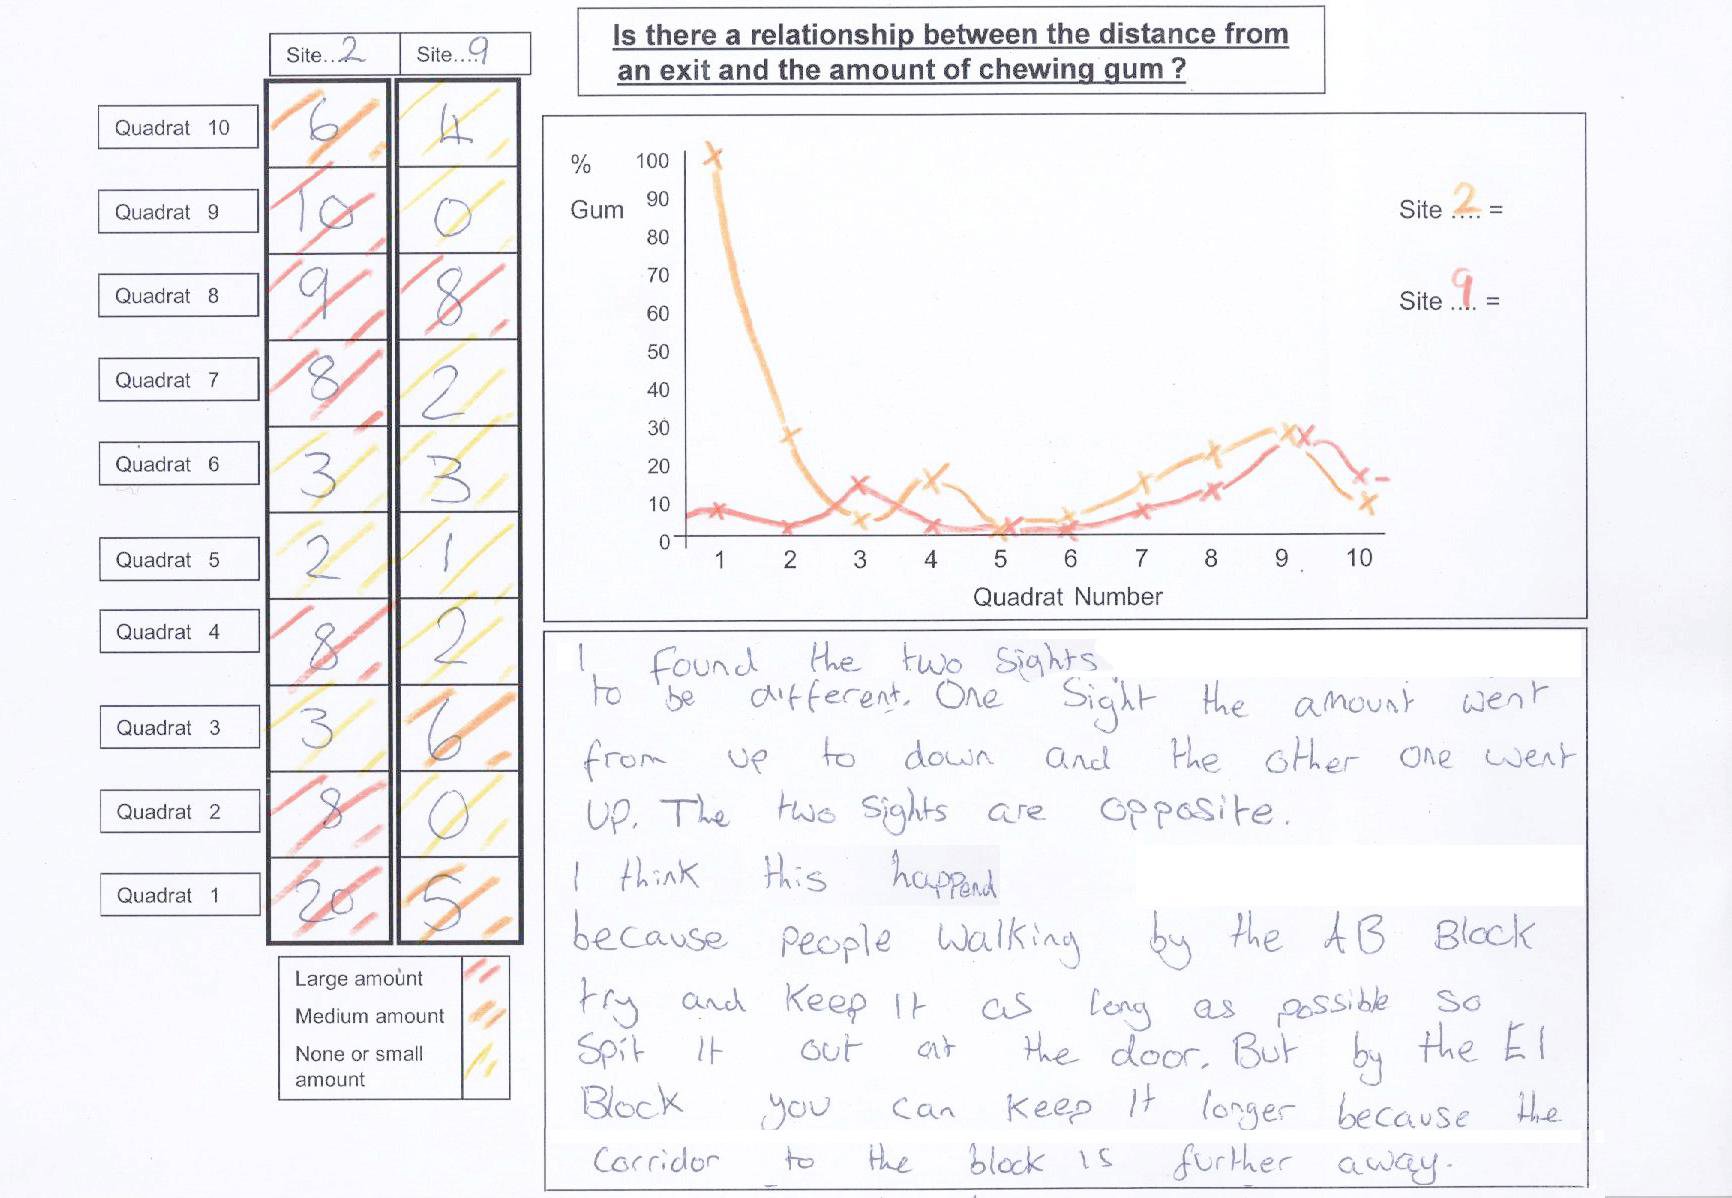 Is there a relationship between the distance from
an exit and the amount of chewing gum ?
Site..2 Site....9
Quadrat 10 6 4
Quadrat 9 10 0
Quadrat 8 9 8
Quadrat 7 8 2
Quadrat 6 3 3
Quadrat 5 2 1
Quadrat 4 8 2
Quadrat 3 3 6
Quadrat 2 8 0
Quadrat 1 20 5
Large amount
Medium amount
None or small
amount
%
Gum
100
90
80
70
60
50
40
30
20
10
0
1 2 3 4 5 6 7 8 9 10
Quadrat Number
Site 2 =
Site 9 =
I found the two sights
to be different. One Sight the amount went
from up to down and the other one went
up. The two sights are opposite.
I think this happend
because people walking by the AB Block
try and keep it as long as possible so
spit it out at the door. But by the E1
Block you can keep it longer because the
corridor to the block is further away.